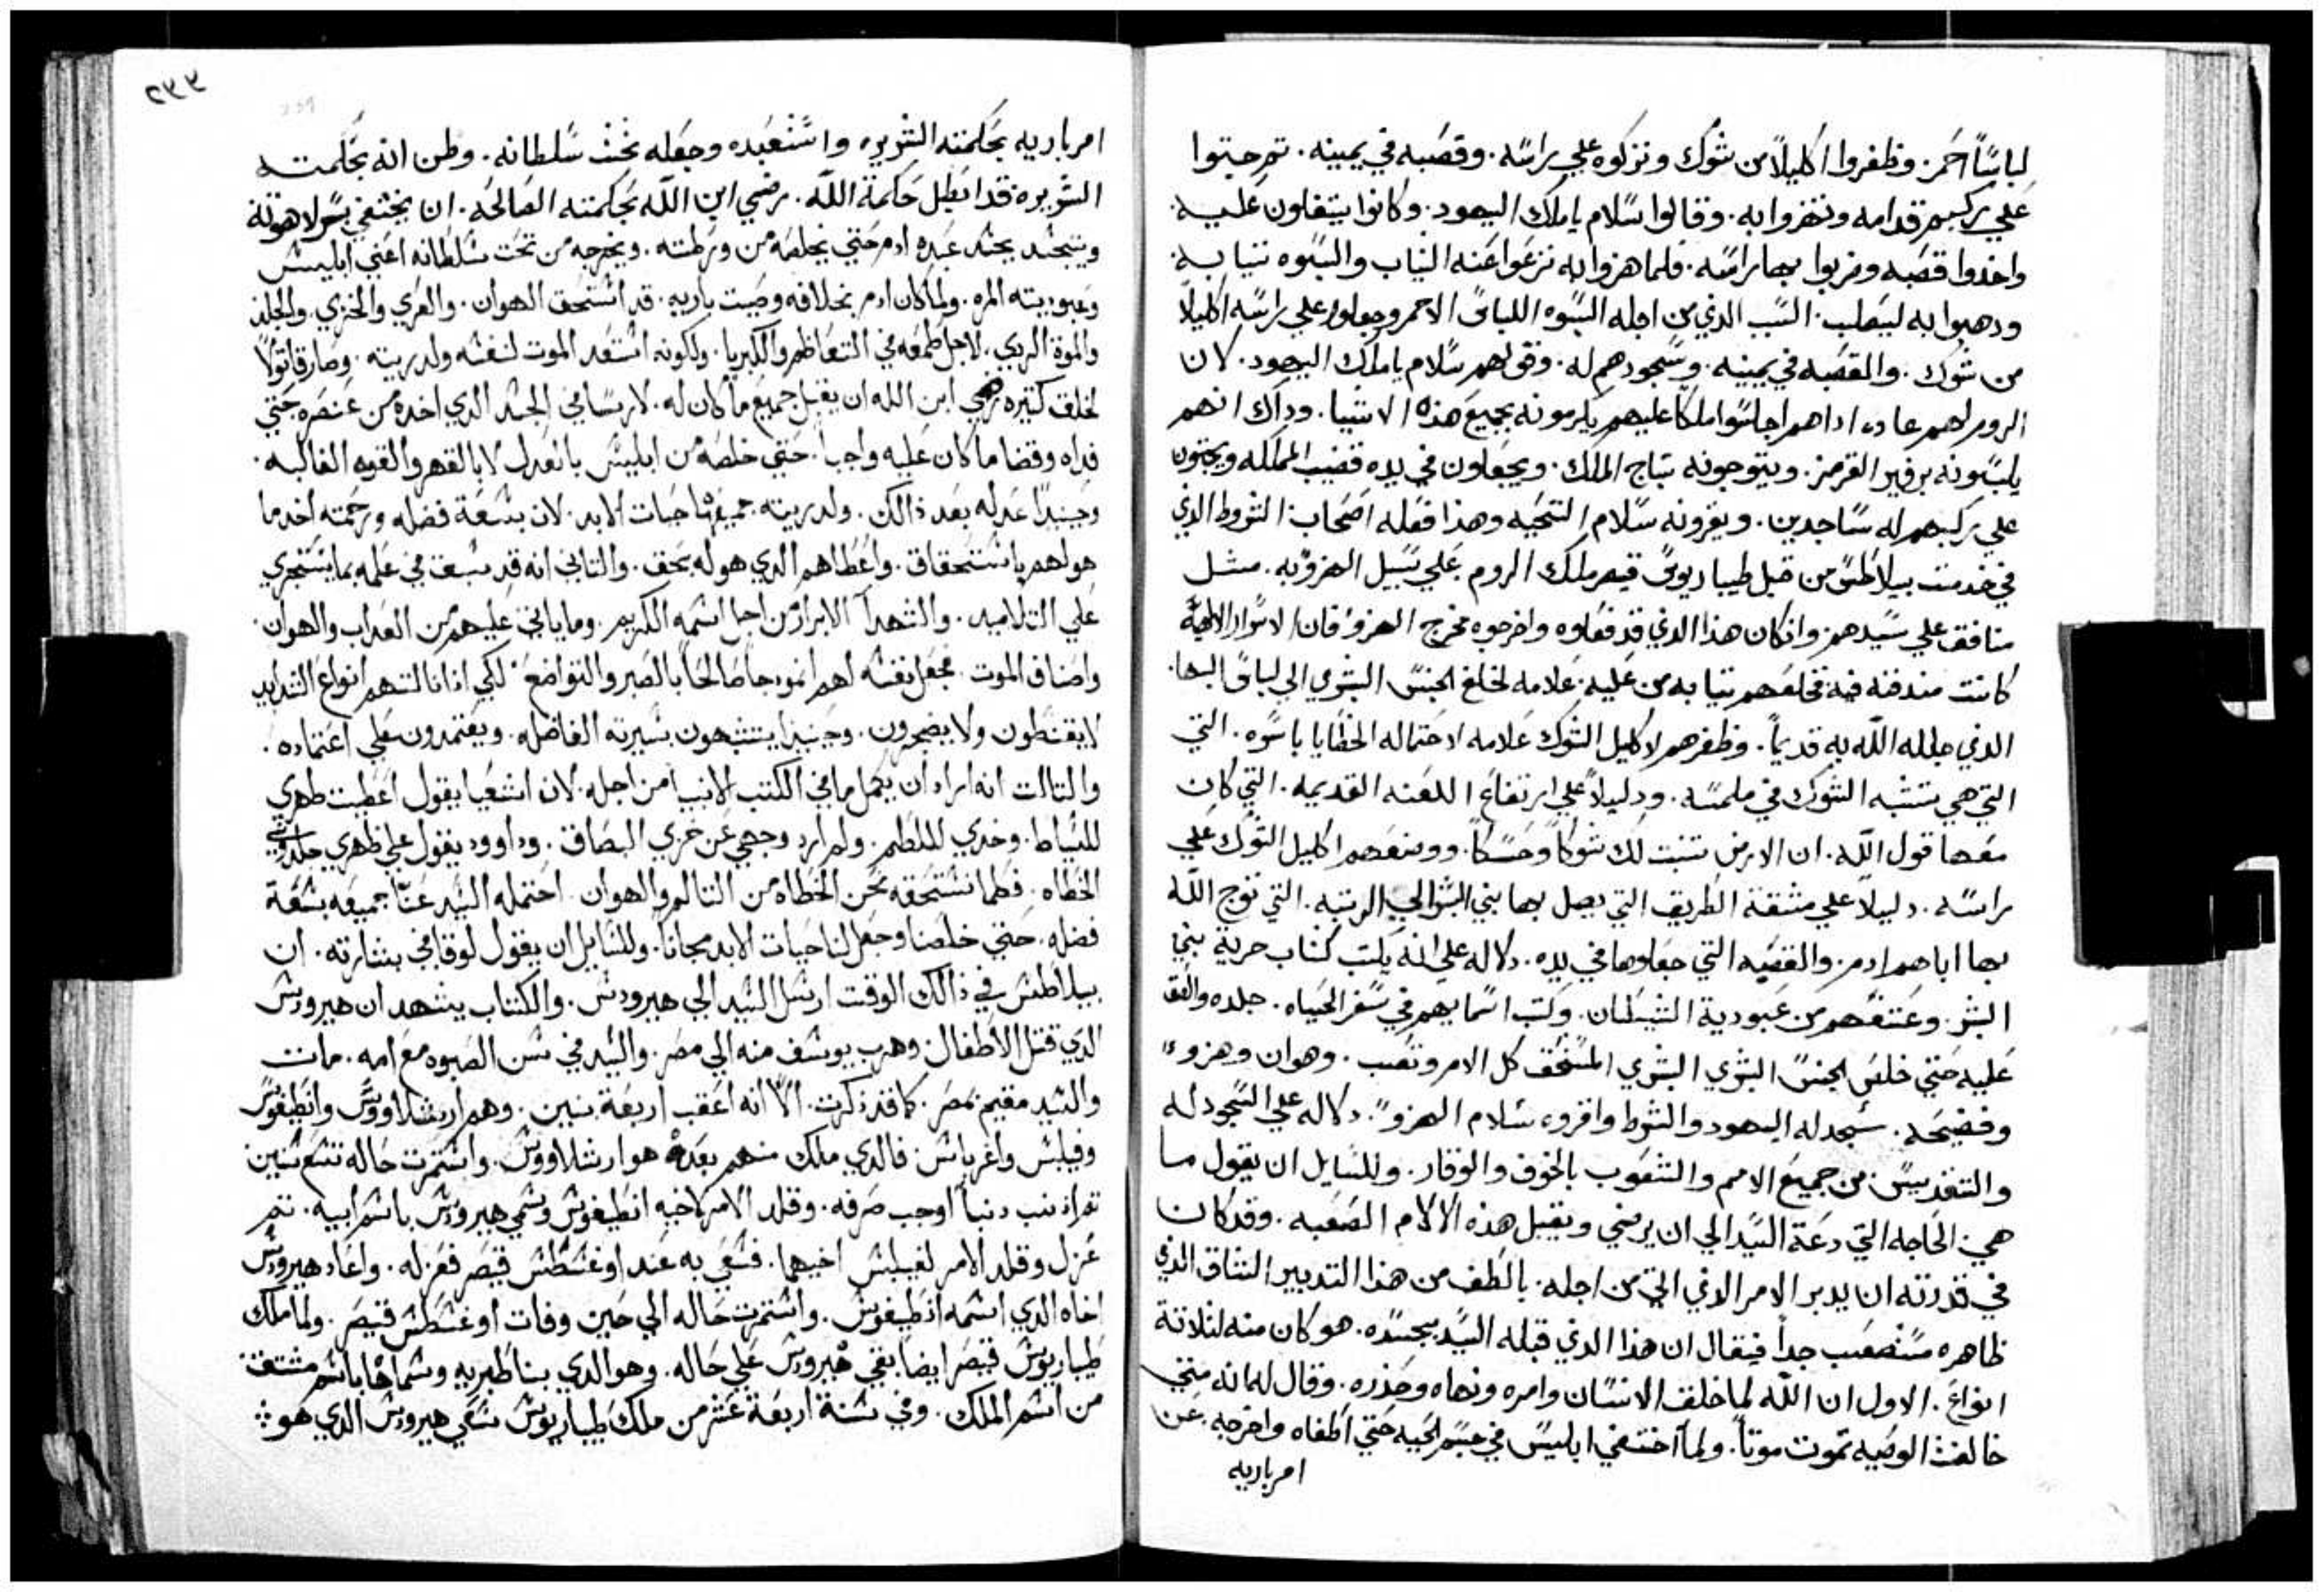 لباسًا احمر. وظفروا اكليلاً من شوك وتركوه علي راسه. وقصبه في يمينه. تم جتوا
علي ركبهم قدامه وتهزوا به. وقالوا سلام يا ملك اليهود. وكانوا يتفلون عليه.
واخدوا قصبه وضربوا بها راسه. فلما هزوا به نزعوا عنه التياب والبسوه تيابه.
ودهبوا به ليصلب. السبب الدي من اجله البسوه اللباس الاحمر وجعلوا علي راسه اكليلاً
من شوك. والقصبه في يمينه. وسجودهم له. وقولهم سلام يا ملك اليهود. لان
الروم لهم عاده اداهم اجلسوا ملكا عليهم يكرمونه بجميع هذه الاشيا. وداك انهم
يلبسونه برفير القرمز. ويتوجونه بتاج الملك. ويجعلون في يده قضيب المملكه ويجتون
علي ركبهم له ساجدين. ويقرونه سلام التحيه وهذا فعله اصحاب الشروط الذي
في خدمت بيلاطس من قبل طيباريوس قيصر ملك الروم علي سبيل الهزو به. مثل
منافق علي سيدهم وانكان هذا الذي قد فعلوه واخرجوه مخرج الهزو فان الاسرار الالهيه
كانت مندفنه فيه فخلعهم تيابه من عليه علامه لخلع الجنس البشري الي لباس البها.
الذي جلله الله به قديماً. وظفرهم لاكليل الشوك علامه لاحتماله الخطايا باسره. التي
التي هي تشبه الشوك في ملمسه. ودليلاً علي ارتفاع اللعنه القديمه. التي كان
معها قول الله. ان الارض تنبت لك شوكاً وحسكاً. ووضعهم اكليل الشوك علي
راسه. دليلاً علي مشقة الطريق التي يصل بها بني البشر الي الرتبه. التي توج الله
بها اباهم ادم. والقصبه التي جعلوها في يده. دلاله علي انه يكتب كتاب حرية بني
البشر. وعتقهم من عبودية الشيطان. وكتب اسمايهم في سفر الحياه. جلده والقو
عليه حتي خلص الجنس البشري البشري المستحق كل الامر وتعب. وهوان وهزوء
وفضيحه. سجد له اليهود والشرط واقروه سلام الهزوء. دلاله علي السجود له
والتقديس من جميع الامم والشعوب بالخوف والوقار. وللسايل ان يقول ما
هي الحاجه التي دعة السيد الي ان يرضي ويقبل هذه الالام الصعبه. وقد كان
في قدرته ان يدبر الامر الذي اتي من اجله. بالطف من هذا التدبير الشاق الذي
ظاهره مستصعب جداً فيقال ان هذا الذي قبله السيد بجسده. هو كان منه لتلاتة
انواع. الاول ان الله لما خلق الانسان وامره ونهاه وحذره. وقال له انه متي
خالفت الوصيه تموت موتاً. ولما اختفي ابليس في جسم الحيه حتي اطغاه واخرجه عن
امر باريه
٢٣٣
امر باريه بحكمته الشريره واستعبده وجعله تحت سلطانه. وظن انه بحكمته
الشريره قد ابطل حكمة الله. رضي ابن الله بحكمته الصالحه. ان يختفي بسر لاهوته
ويتجسد بجسد عبده ادم حتي يخلصه من ورطته. ويخرجه من تحت سلطانه اعني ابليس
وعبوديته المره. ولما كان ادم بخلافه وصيت باريه. قد استحق الهوان. والعري والخزي. والجلد
والموة الردي. لاجل طمعه في التعاظم والكبريا. ولكونه استعد الموت لنفسه ولدريته. وصار قاتولاً
لخلق كتيره رضي ابن الله ان يقبل جميع ما كان له. لا ريسا في الجسد الدي اخده من عنصره حتي
فداه وقضا ما كان عليه واجباً. حتي خلصه من ابليس بالعدل لا بالقهر والقوه الغالبه.
وحينيداً عدله بعد ذالك. ولدريته جميعها حيات الابد. لان بسعة فضله ورحمته اخد ما
هو لهم باستحقاق. واعطاهم الدي هو له بحق. والتاني انه قد سبق في علمه بما يستجري
علي التلاميد. والشهدآ الابرار من اجل اسمه الكريم. وما ياتي عليهم من العداب والهوان.
واصناف الموت. فجعل نفسه لهم انمودجاً صالحاً بالصبر والتواضع. لكي ادا نالتهم انواع الشدايد
لا يقنطون ولا يضجرون. وحينيدا يتشبهون بسيرته الفاضله. ويعتمدون علي اعتماده.
والتالت انه اراد ان يكمل ما في الكتب الانبيا من اجله. لان اشعيا يقول اعطيت ظهري
للسياط. وخدي لللطم. ولم ارد وجهي عن خزي البصاق. وداوود يقول علي ظهري جلدوني
الخطاه. فكلما نستحقه نحن الخطاه من التالم والهوان. احتمله السيد عنا جميعه بسعة
فضله. حتي خلصنا وجعل لنا حيات الابد مجاناً. وللسايل ان يقول لوقا في بشارته. ان
بيلاطس في ذالك الوقت ارسل السيد الي هيرودس. والكتاب يشهد ان هيرودس
الدي قتل الاطفال. وهرب يوسف منه الي مصر. والسيد في سن الصبوه مع امه. مات
والسيد مقيم بمصر. كما قد ذكرت. الا انه اعقب اربعة بنين. وهم ارشلاووس وانطيفوس
وفيلبس واغرباس. فالدي ملك منهم بعده هو ارشلاووس. واستمرت حاله تسع سنين
تم ادنب دنباً اوجب صرفه. وقلد الامر لاخيه انطيفوس وسمي هيرودس باسم ابيه. تم
عزل وقلد الامر لفيلبس اخيهما. فسعي به عند اوغسطس قيصر فعزله. واعاد هيرودس
اخاه الدي اسمه انطيفوس. واستمرت حاله الي حين وفات اوغسطس قيصر. ولما ملك
طيباريوس قيصر ايضاً بقي هيرودس علي حاله. وهو الدي بنا طبريه وسماها باسم مشتق
من اسم الملك. وفي سنة اربعة عشر من ملك طيباريوس سعي هيرودس الدي هو